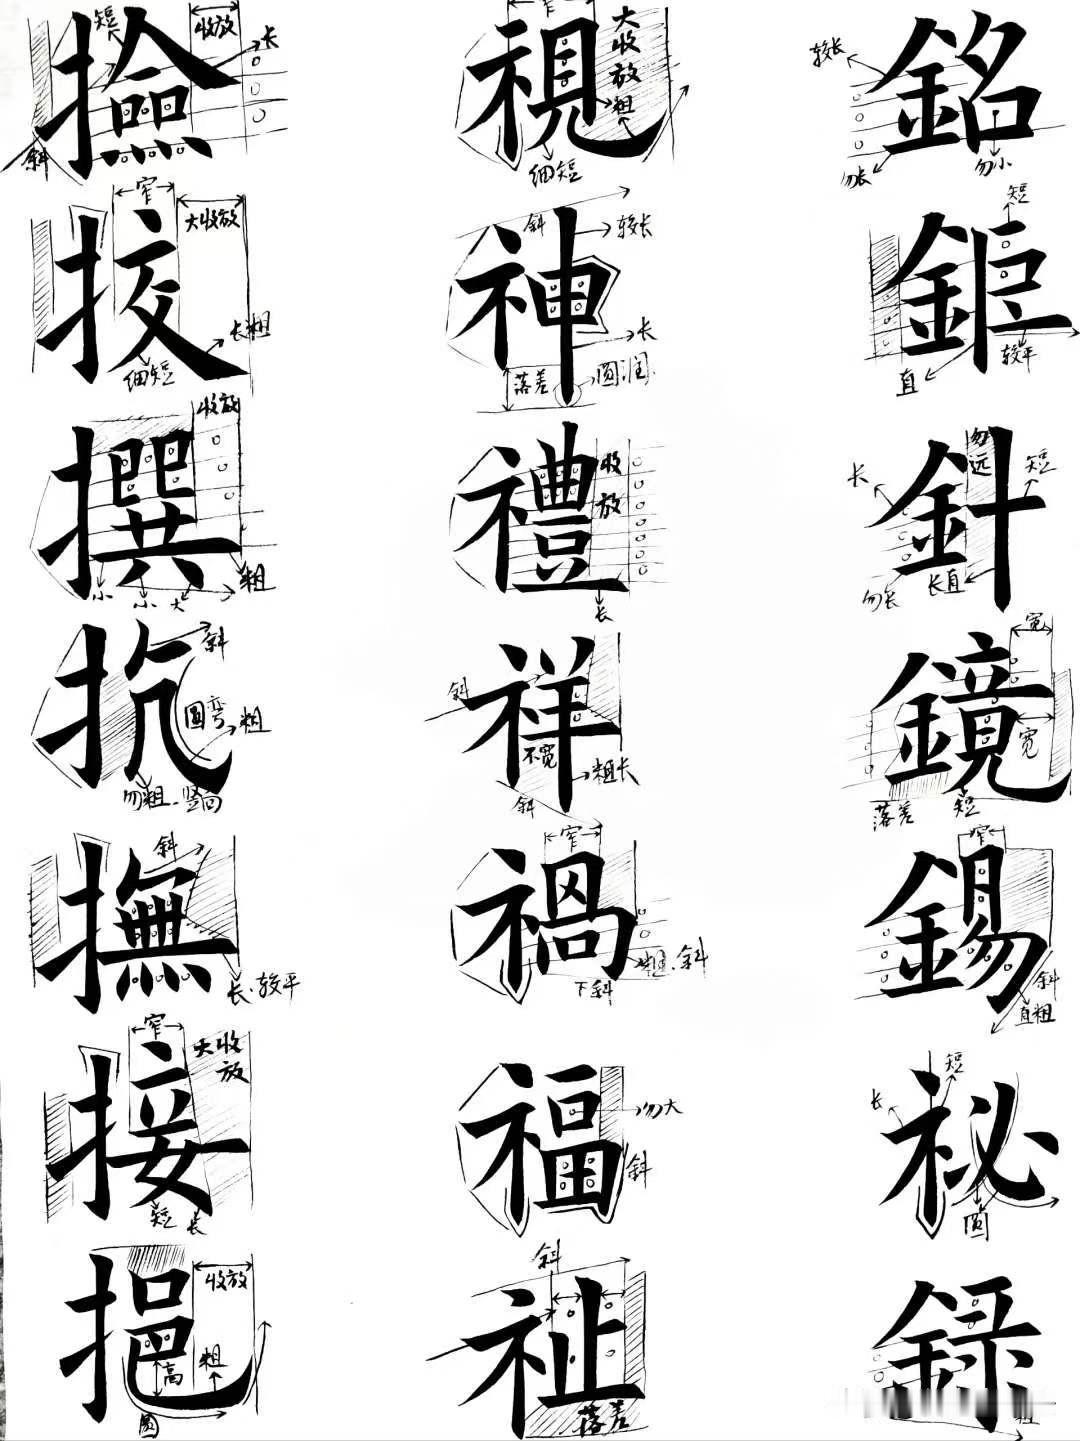 短
收放
长
撿
斜
窄
大收放
挍
长粗
细短
收放
撰
粗
小
小
大
斜
抗
圆弯
粗
勿粗.竖回
斜
撫
长.较平
窄
大收放
接
短
长
收放
挹
粗
高
圆
窄
大收放
視
粗
细短
斜
较长
神
长
落差
圆润
收放
禮
长
斜
祥
不宽
粗长
斜
窄
禍
粗.斜
下斜
福
勿大
斜
斜
祉
落差
较长
銘
勿长
勿小
短
鉅
较平
直
勿远
长
短
針
勿长
长直
宽
鏡
宽
落差
短
窄
錫
斜
直粗
长
短
祕
圆
録